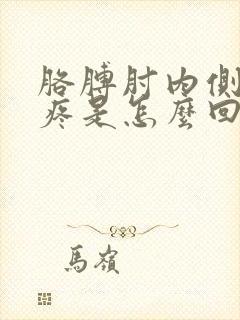 胳膊肘内側
疼是怎麼回
馬嶺